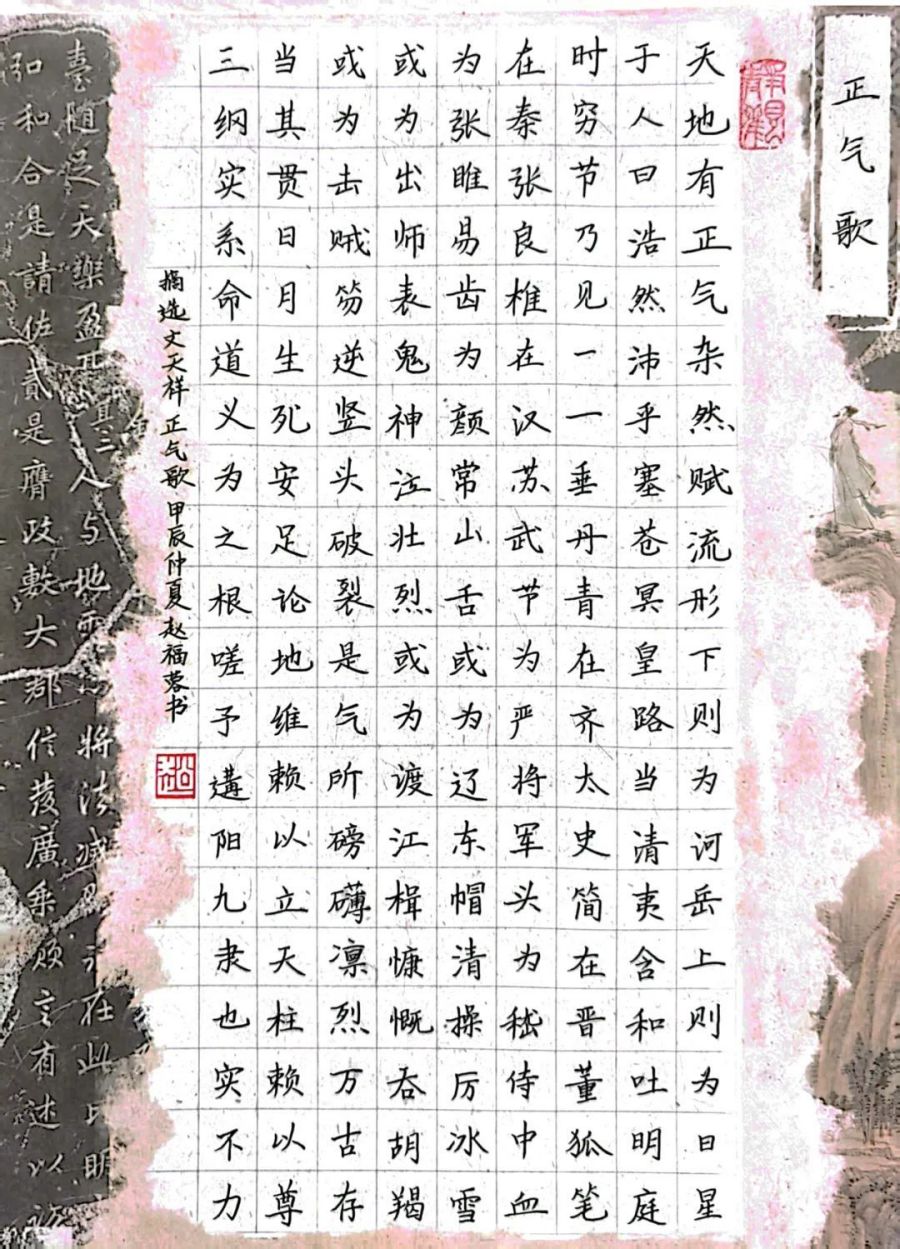 正气歌
天地有正气杂然赋流形下则为河岳上则为日星
于人曰浩然沛乎塞苍冥皇路当清夷含和吐明庭
时穷节乃见一一垂丹青在齐太史简在晋董狐笔
在秦张良椎在汉苏武节为严将军头为嵇侍中血
为张睢易齿为颜常山舌或为辽东帽清操厉冰雪
或为出师表鬼神泣壮烈或为渡江楫慷慨吞胡羯
或为击贼笏逆竖头破裂是气所磅礴凛烈万古存
当其贯日月生死安足论地维赖以立天柱赖以尊
三纲实系命道义为之根嗟予遘阳九隶也实不力
摘选文天祥正气歌甲辰仲夏赵福蓉书
赵
臺随足天盈正其三人与地将法在此明
和合是請佐貳是膺政敷大郡信廣言有述以